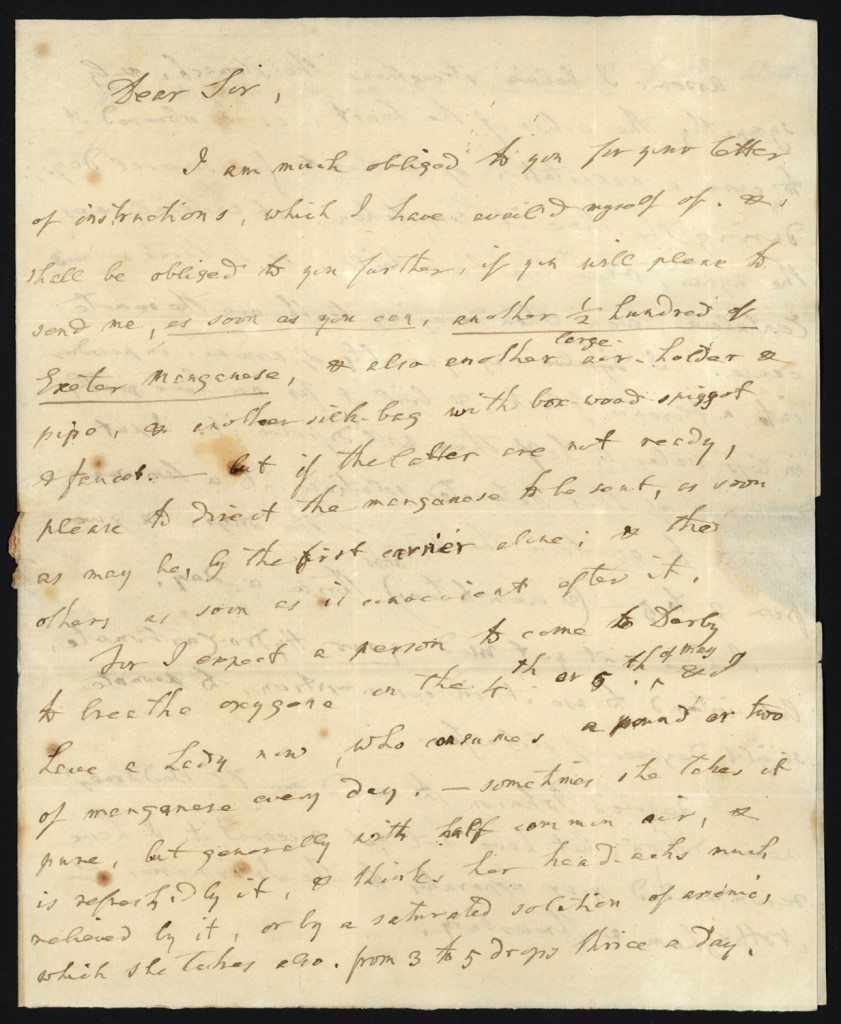 Dear Sir,
I am much obliged to you for your letter
of instructions, which I have avail'd myself of. &,
shall be obliged to you further, if you will please to
send me, as soon as you can, another ½ hundred of
Exeter manganese, & also another large air-holder &
pipe, & another silk-bag with box-wood spiggot
& faucet. — but if the latter are not ready,
please to direct the manganese to be sent, as soon
as may be, by the first carrier alone; & the
others as soon as is convenient after it,
for I expect a person to come to Derby
to breathe oxygene on the 4th or 5th of may. & I
have a Lady now, who consumes a pound or two
of manganese every day. — sometimes she takes it
pure, but generally with half common air, &
is refresh'd by it, & thinks her head-achs much
relieved by it, or by a saturated solution of arsenic,
which she takes also. from 3 to 5 drops thrice a Day.